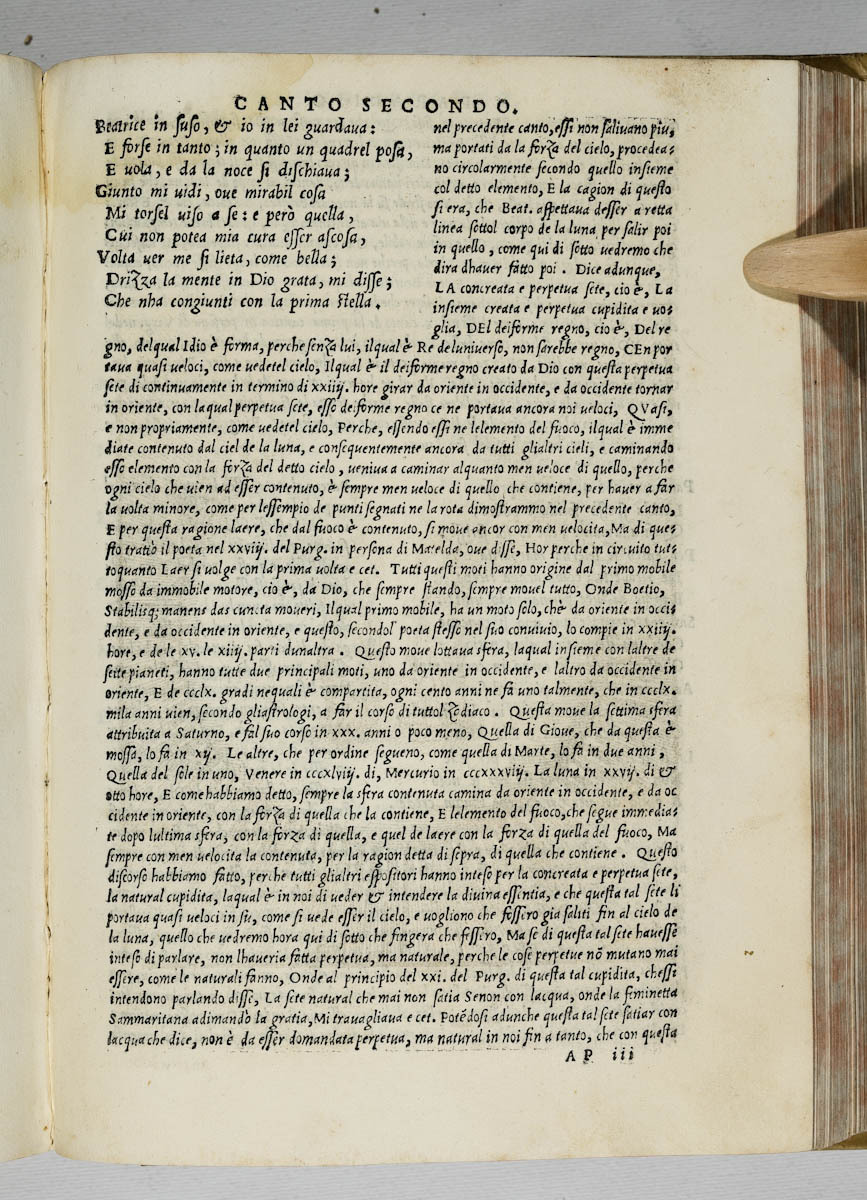 CANTO SECONDO.
Beatrice in suso, & io in lei guardaua:
E forse in tanto; in quanto un quadrel posa,
E uola, e da la noce si dischiaua;
Giunto mi uidi, oue mirabil cosa
Mi torsel uiso a se: e però quella,
Cui non potea mia cura esser ascosa,
Volta uer me si lieta, come bella;
Drizza la mente in Dio grata, mi disse;
Che nha congiunti con la prima stella.
nel precedente canto, essi non saliuano piu,
ma portati da la forza del cielo, procedea=
no circolarmente secondo quello insieme
col detto elemento, E la cagion di questo
si era, che Beat. aspettaua desser a retta
linea sottol corpo de la luna per salir poi
in quello, come qui di sotto uedremo che
dira dhauer fatto poi. Dice adunque,
LA concreata e perpetua sete, cio è, La
insieme creata e perpetua cupidita e uo=
glia, DEl deiforme regno, cio è, Del re
gno, delqual Idio è forma, perche senza lui, ilqual è Re de luniuerso, non sarebbe regno, CEn por
taua quasi ueloci, come uedetel cielo, Ilqual è il deiforme regno creato da Dio con questa perpetua
sete di continuamente in termino di xxiiij. hore girar da oriente in occidente, e da occidente tornar
in oriente, con laqual perpetua sete, esso deiforme regno ce ne portaua ancora noi ueloci, QVasi,
e non propriamente, come uedetel cielo, Perche, essendo essi ne lelemento del fuoco, ilqual è imme
diate contenuto dal ciel de la luna, e consequentemente ancora da tutti glialtri cieli, e caminando
esso elemento con la forza del detto cielo, ueniua a caminar alquanto men ueloce di quello, perche
ogni cielo che uien ad esser contenuto, è sempre men ueloce di quello che contiene, per hauer a far
la uolta minore, come per lessempio de punti segnati ne la rota dimostrammo nel precedente canto,
E per questa ragione laere, che dal fuoco è contenuto, si moue ancor con men uelocita, Ma di que=
sto trattò il poeta nel xxviij. del Purg. in persona di Matelda, oue disse, Hor perche in circuito tut=
to quanto Laer si uolge con la prima uolta e cet. Tutti questi moti hanno origine dal primo mobile
mosso da immobile motore, cio è, da Dio, che sempre stando, sempre mouel tutto, Onde Boetio,
Stabilisq; manens das cuncta moueri, Ilqual primo mobile, ha un moto solo, chè da oriente in occi=
dente, e da occidente in oriente, e questo, secondol poeta stesso nel suo conuiuio, lo compie in xxiiij.
hore, e de le xv. le xiiij. parti dunaltra. Questo moue lottaua sfera, laqual insieme con laltre de
sette pianeti, hanno tutte due principali moti, uno da oriente in occidente, e laltro da occidente in
oriente, E de ccclx. gradi nequali è compartita, ogni cento anni ne fa uno talmente, che in ccclx.
mila anni uien, secondo gliastrologi, a far il corso di tuttol zodiaco. Questa moue la settima sfera
attribuita a Saturno, e fal suo corso in xxx. anni o poco meno, Quella di Gioue, che da questa è
mossa, lo fa in xij. Le altre, che per ordine segueno, come quella di Marte, lo fa in due anni,
Quella del sole in uno, Venere in cccxlviij. di, Mercurio in cccxxxviij. La luna in xxvij. di &
otto hore, E come habbiamo detto, sempre la sfera contenuta camina da oriente in occidente, e da oc
cidente in oriente, con la forza di quella che la contiene, E lelemento del fuoco, che segue immedia=
te dopo lultima sfera, con la forza di quella, e quel de laere con la forza di quella del fuoco, Ma
sempre con men uelocita la contenuta, per la ragion detta di sopra, di quella che contiene. Questo
discorso habbiamo fatto, perche tutti glialtri espositori hanno inteso per la concreata e perpetua sete,
la natural cupidita, laqual è in noi di ueder & intendere la diuina essentia, e che questa tal sete li
portaua quasi ueloci in su, come si uede esser il cielo, e uogliono che fossero gia saliti fin al cielo de
la luna, quello che uedremo hora qui di sotto che fingera che fossero, Ma se di questa tal sete hauesse
inteso di parlare, non lhaueria fatta perpetua, ma naturale, perche le cose perpetue nõ mutano mai
essere, come le naturali fanno, Onde al principio del xxi. del Purg. di questa tal cupidita, chessi
intendono parlando disse, La sete natural che mai non satia Senon con lacqua, onde la feminetta
Sammaritana adimandò la gratia, Mi trauagliaua e cet. Potẽdosi adunche questa tal sete satiar con
lacqua che dice, non è da esser domandata perpetua, ma natural in noi fin a tanto, che con questa
AP iii